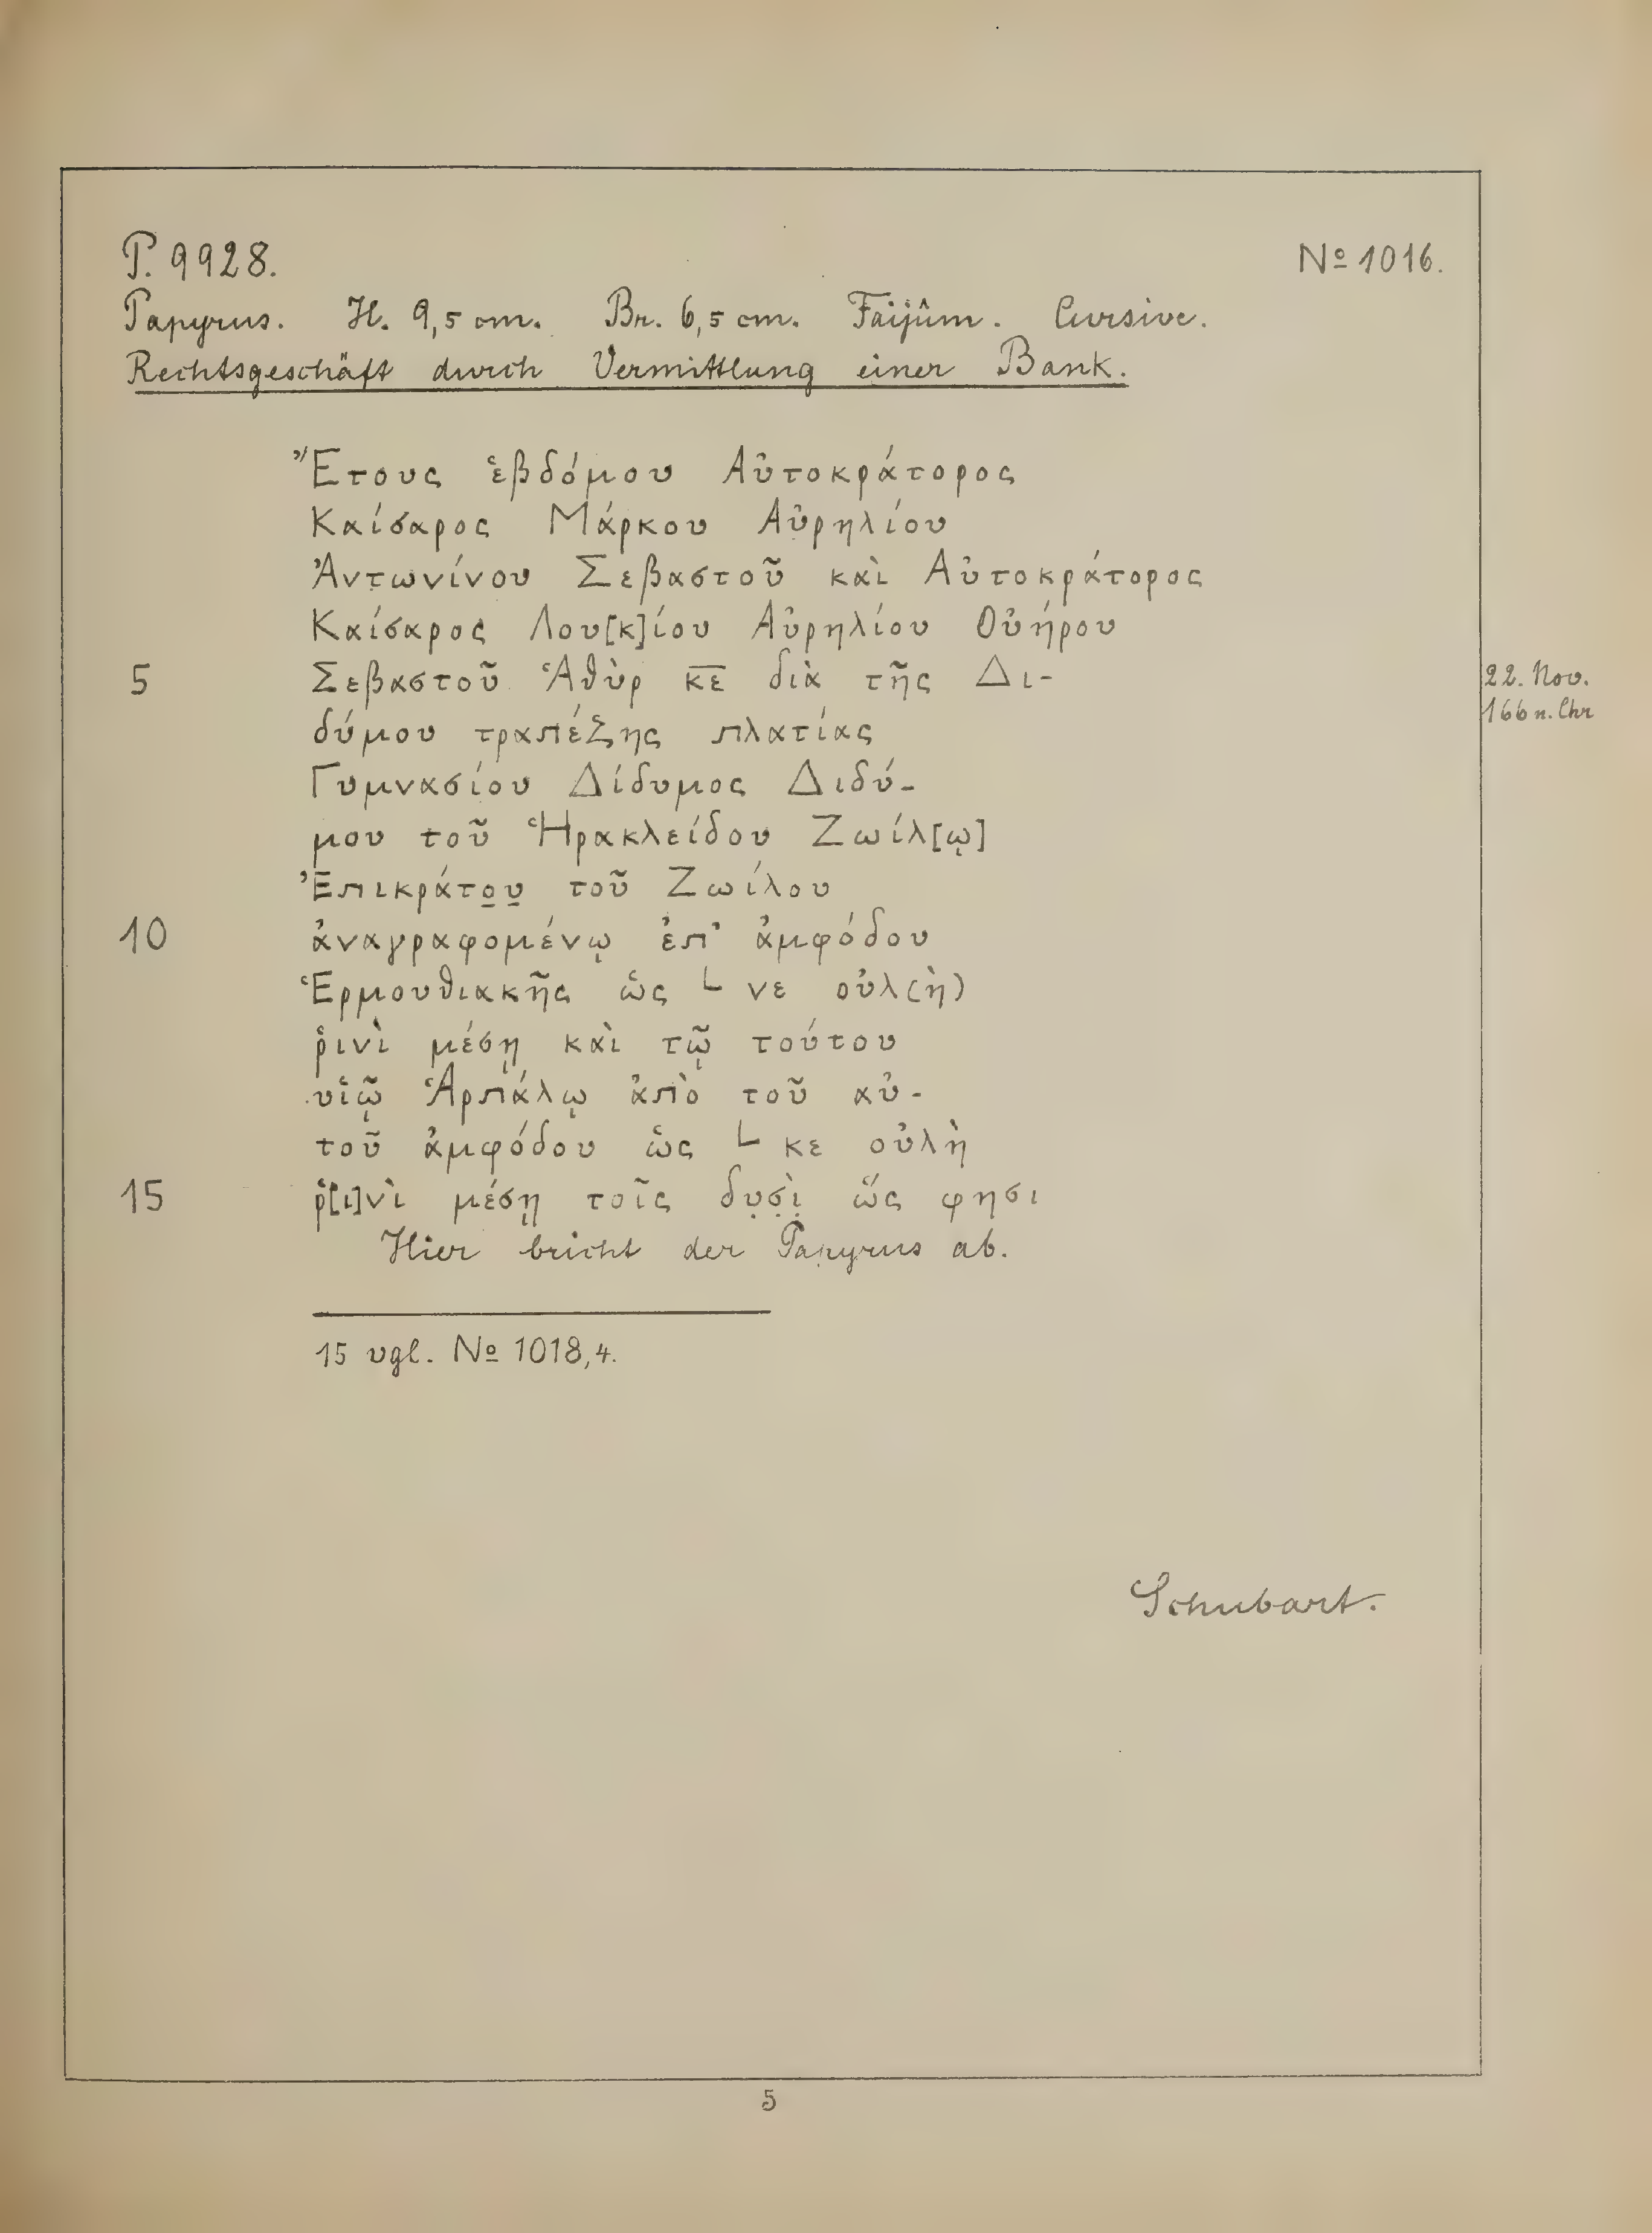 P. 9928. № 1016.
Papyrus. H. 9,5 cm. Br. 6,5 cm. Faijûm. Cursive.
Rechtsgeschäft durch Vermittlung einer Bank.
Ἔτους ἑβδόμου Αὐτοκράτορος
Καίσαρος Μάρκου Αὐρηλίου
Ἀντωνίνου Σεβαστοῦ καὶ Αὐτοκράτορος
Καίσαρος Λου[κ]ίου Αὐρηλίου Οὐήρου
5 Σεβαστοῦ Ἁθὺρ κ̅ε̅ διὰ τῆς Δι- 22. Nov.
166 n. Chr
δύμου τραπέζης πλατίας
Γυμνασίου Δίδυμος Διδύ-
μου τοῦ Ἡρακλείδου Ζωίλ[ῳ]
Ἐπικράτο̲υ̲ τοῦ Ζωίλου
10 ἀναγραφομένῳ ἐπ' ἀμφόδου
Ἑρμουθιακῆς ὡς └ νε οὐλ(ὴ)
ῥινὶ μέσῃ καὶ τῷ τούτου
υἱῷ Ἁρπάλῳ ἀπὸ τοῦ αὐ-
τοῦ ἀμφόδου ὡς └ κε οὐλὴ
15 ῥ[ι]νὶ μέσῃ τοῖς δυ̣σ̣ὶ̣ ὥς φησι
Hier bricht der Papyrus ab.
15 vgl. № 1018,4.
Schubart.
5